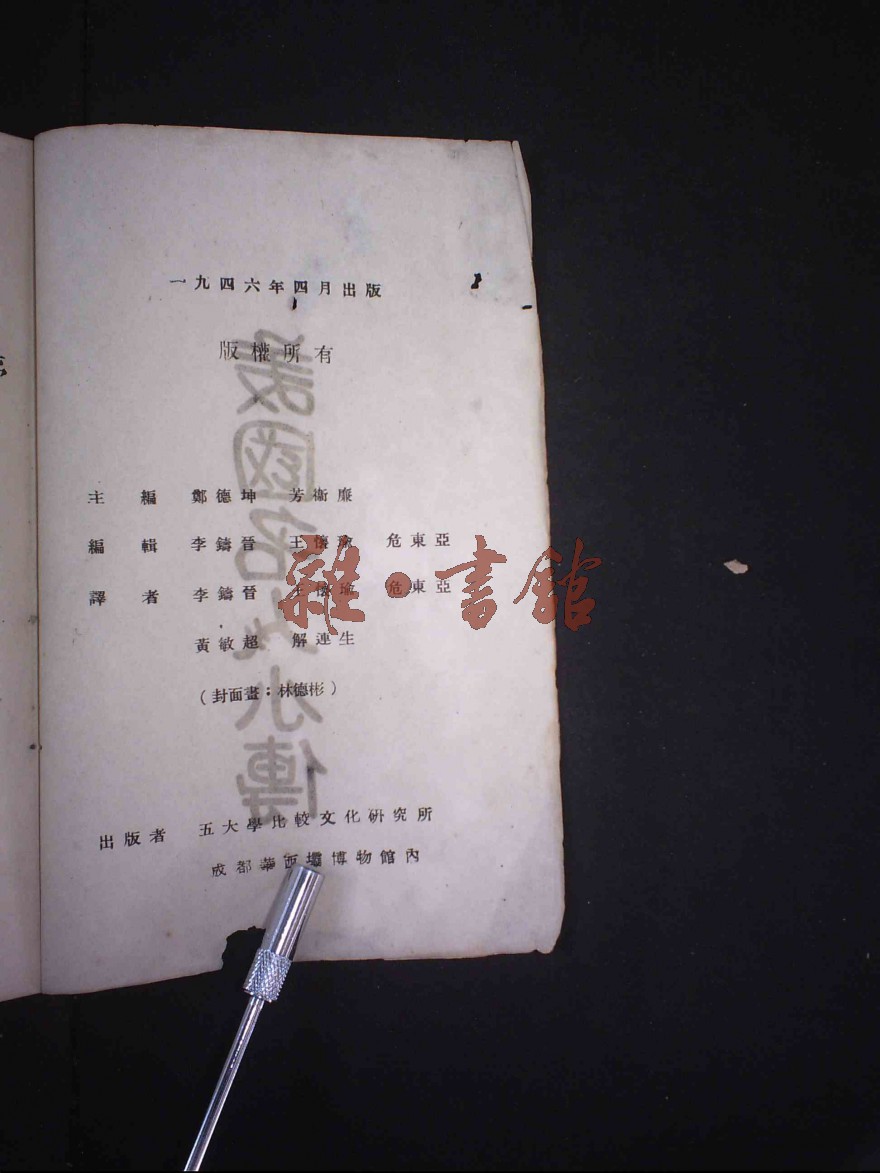 一九四六年四月出版
版權所有
主編 鄭德坤 芳衞廉
編輯 李鑄晉 王懷瑜 危東亞
譯者 李鑄晉 王懷瑜 危東亞
黃敏超 解連生
(封面畫：林德彬)
出版者 五大學比較文化研究所
成都華西壩博物館內
雜·書館